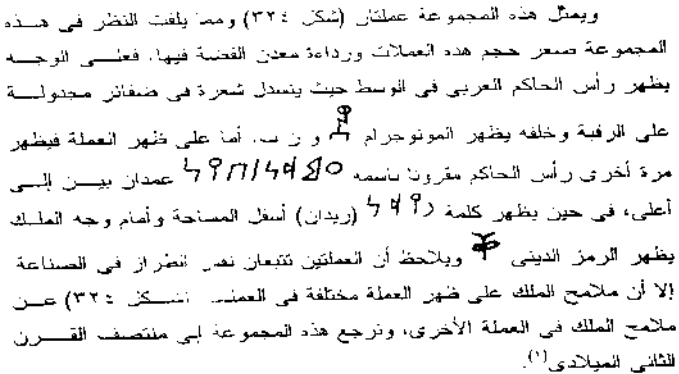 ويمثل هذه المجموعة عملتان (شكل ٣٢٤) ومما يلفت النظر في هذه
المجموعة صغر حجم هذه العملات ورداءة معدن الفضة فيها. فعلى الوجه
يظهر رأس الحاكم العربى فى الوسط حيث ينسدل شعرة فى ضفائر مجدولة
على الرقبة وخلفه يظهر المونوجرام و ن س. أما على ظهر العملة فيظهر
مرة أخرى رأس الحاكم مقرونا باسمه 𐩲𐩣𐩵𐩬𐩽𐩨𐩺𐩬 عمدان بين إلى
أعلى، فى حين يظهر كلمة 𐩧𐩺𐩵𐩬 (ريدان) أسفل المساحة وأمام وجه الملك
يظهر الرمز الدينى ويلاحظ أن العملتين تتبعان نفس الطراز فى الصناعة
إلا أن ملامح الملك على ظهر العملة مختلفة فى العملة (شكل ٣٢٤) عن
ملامح الملك فى العملة الأخرى، ونرجع هذه المجموعة إلى منتصف القرن
الثانى الميلادى(١).